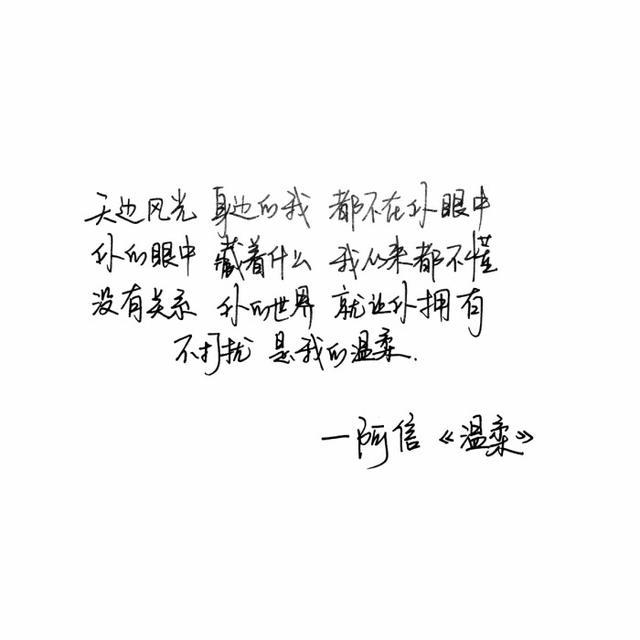 天边风光 身边的我 都不在你眼中
你的眼中 藏着什么 我从来都不懂
没有关系 你的世界 就让你拥有
不打扰 是我的温柔.
—阿信《温柔》